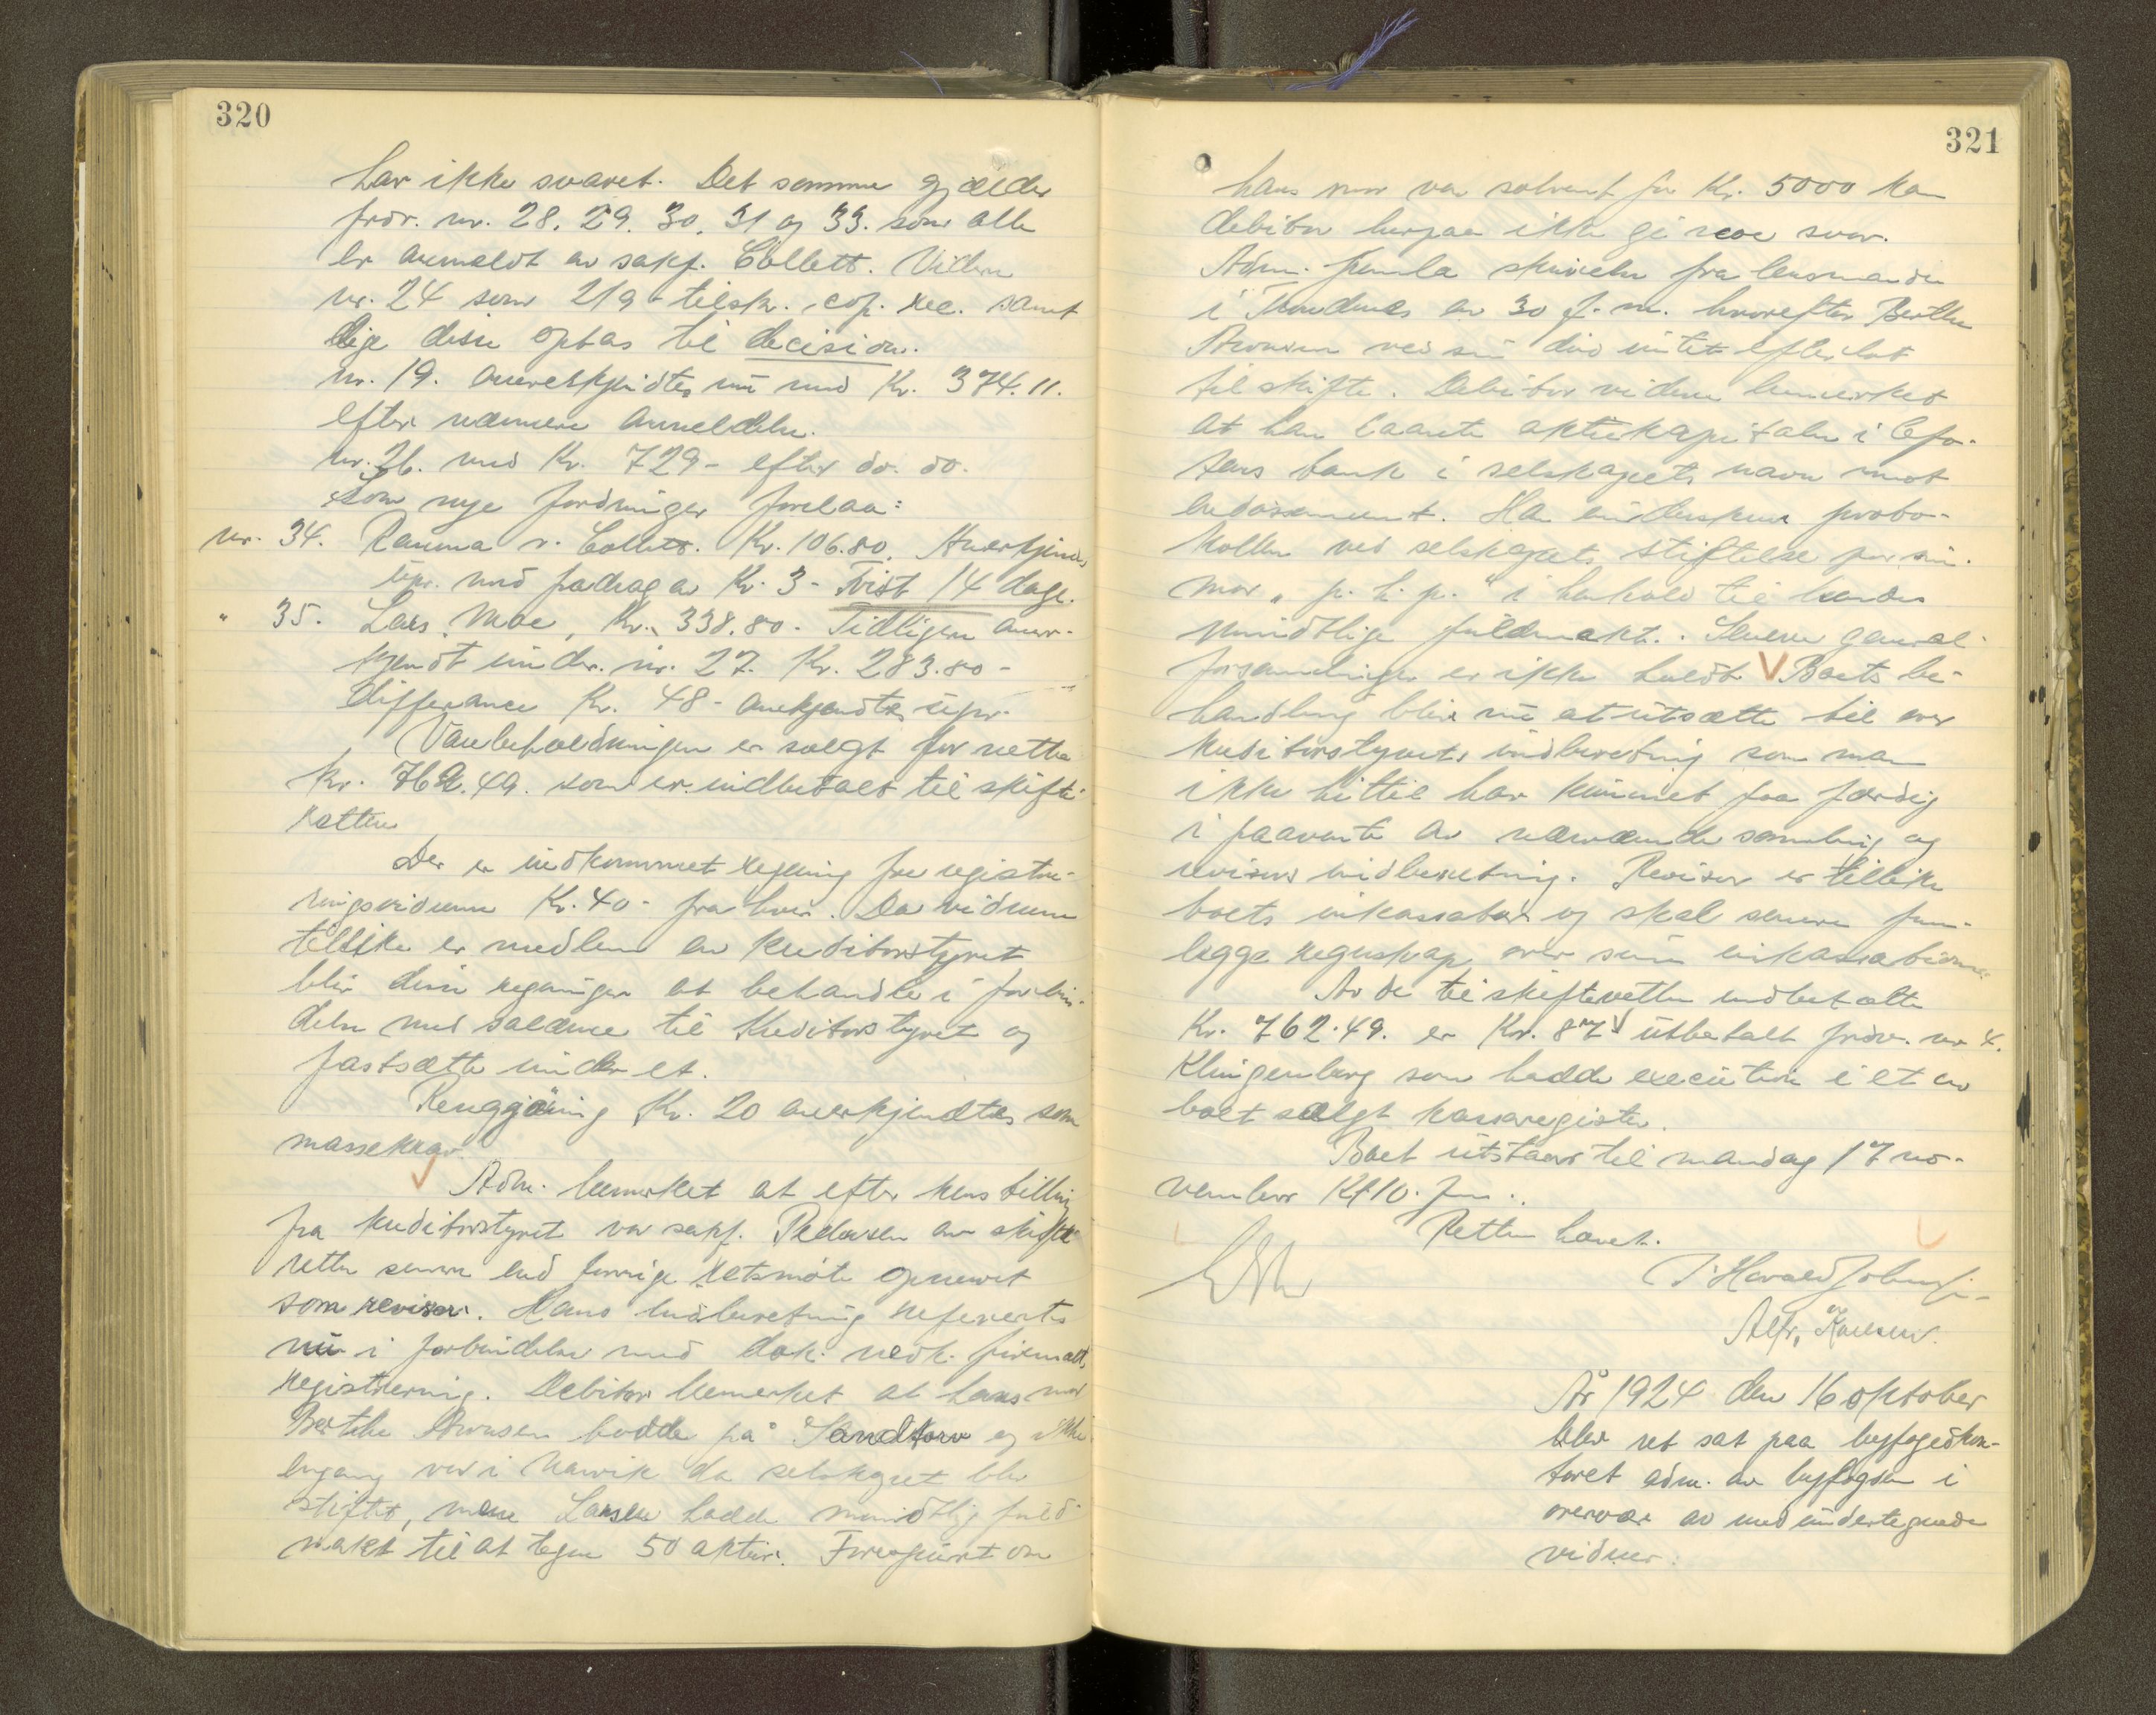 320
har ikke svaret. Det samme gjælder
fordr. nr. 28. 29. 30. 31 og 33. som alle
er anmeldt av sakf. Collett.
nr. 24 som 219 - tilsk. cop. samt
lige disse optas til decision.
nr. 19. anerkjendtes nu med Kr. 374.11.
efter nærmere anmeldelse.
nr. 26. med Kr. 729 - efter do. do.
Som nye fordringer forelaa:
nr. 34. Rauma v. Collett. Kr. 106.80. Anerkjendes
upr. med fradrag av Kr. 3 - Frist 14 dage.
" 35. Lars Moe, Kr. 338.80 - Tidligere aner-
kjendt under nr. 27. Kr. 283.80 -
differance Kr. 48 - anerkjendtes upr.
Varebeholdningen er solgt for netto
kr. 762.49. som er indbetalt til skifte-
retten
Der er indkommet regning fra registre-
ringsvidnerne Kr. 40 - fra hver. Da vidnerne
tillike er medlem av kreditorstyret
blir disse regninger at behandle i forbin-
delse med salærene til Kreditorstyret og
fastsætte under et.
Rengjøring Kr. 20 anerkjendtes som
massekrav.
Adm. bemerket at efter henstilling
fra kreditorstyret var sakf. Pedersen av skifte-
retten senere end forrige retsmöte opnevnt
som revisor. Hans indberetning refererts
nu i forbindelse med dok. vedk. firmaets
registrering. Debitor bemerket at hans mor
Berthe Aronsen bodde på Sandtorv og ikke
engang var i Narvik da selskapet blev
stiftet, mens Larsen hadde mundtlig fuld-
makt til at tegne 50 aktier. Forespurt om
321
hans mor var solvent for Kr. 5000 kan
debitor herpaa ikke gi noe svar.
Adm. fremla skrivelse fra lensmanden
i Trondenes av 30 f. m. hvorefter Berthe
Aronsen ved sin död intet efterlot
til skifte. Debitor videre bemerket
at han laante aktiekapitalen i Lofo-
tens bank i selskapets navn mot
endossement. Han underskrev proto-
kollen ved selskapets stiftelse for sin
mor „ p. h. p. " i henhold til hendes
mundtlige fuldmakt. Senere general-
forsamlinger er ikke holdt V Boets be-
handling blir nu at utsætte til
kreditorstyrets indberetning som man
ikke hittil har kunnet faa færdig
i paavente av nærværende samling og
revisors indberetning. Revisor er tillike
boets inkassator og skal senere frem-
lægge regnskap over sin inkassation
Av de til skifteretten indbetalte
Kr. 762.49. er Kr. 87 utbetalt fordr. nr 4.
Klingenberg som hadde execution i et av
boet solgt kassaregister.
Boet utstaar til mandag 17 no-
vember Kl 10. fm.
Retten hævet.
Är 1924 den 16 oktober
blev ret sat paa byfogedkon-
toret adm. av byfogden i
overvær av medundertegnede
vidner: